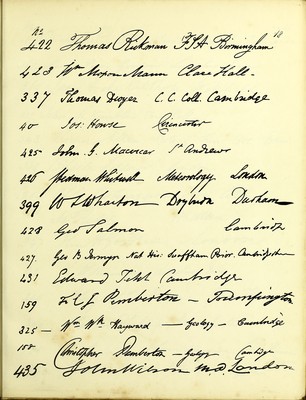 No
422 Thomas Rickman FSA Birmingham
423 Wm Moxon Mann Clare Hall.
337 Thomas Dwyer C. C. Coll. Cambridge
40 Jos: House Cirencester
425 John. J. Macvicar St Andrews
426 Whitwell Meteorology London
399 W L Wharton Dryburn Durham
428 Geo Salmon Cambridge
427. Geo B Jermyn Nat His: Swaffham Prior. Cambridgeshire
431 Edward Cambridge
159 Pemberton — Trumpington
325 — Wm Wm Hayward — Geology — Cambridge
158 Christopher Pemberton — Cambridge
435 John Wilson M.D. London